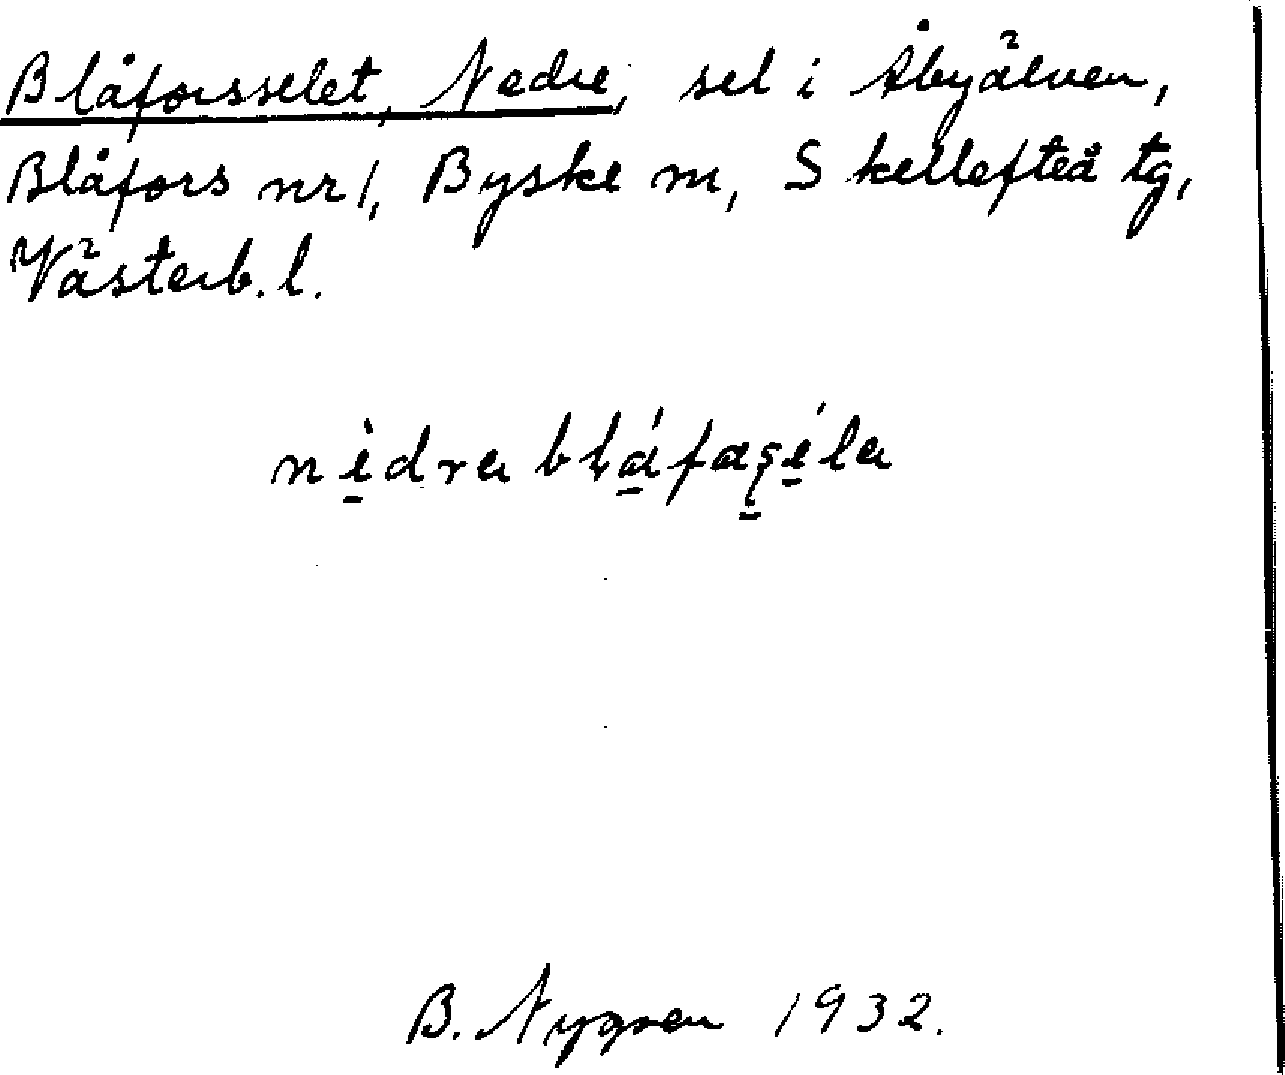 Blåforsselet, Nedre, sel i Åbyälven,
Blåfors nr 1, Byske sn, Skellefteå tg,
Västerb. l.
nìdra blá faşíla
B. Nygren 1932.